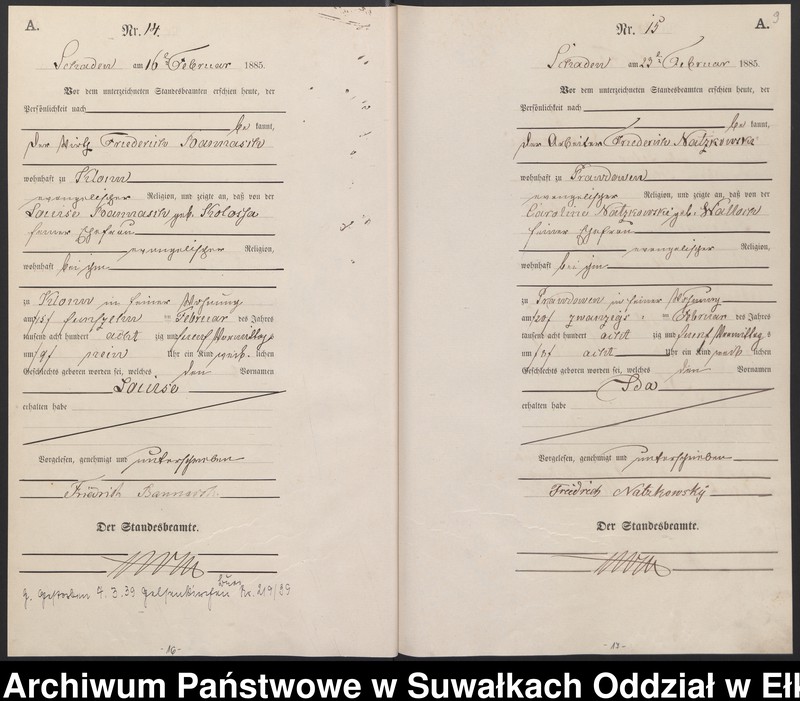 A.
Nr. 14.
am 16 Februar 1885.
Vor dem unterzeichneten Standesbeamten erschien heute, der
Persönlichkeit nach
be kannt,
der Wirth Friederich
wohnhaft zu
evangelischer Religion, und zeigte an, daß von der
Louise geb.
seiner Ehefrau
evangelischer Religion,
wohnhaft bei ihm
zu in seiner Wohnung
am /15/ funfzehn ten Februar des Jahres
tausend acht hundert acht zig und fuenf Vormittags
um /9/ neun Uhr ein Kind weib lichen
Geschlechts geboren worden sei, welches den Vornamen
Louise
erhalten habe
Vorgelesen, genehmigt und unterschrieben
Friedrich
Der Standesbeamte.
g. Gestorben 4.3.39 Gelsenkirchen Buer Nr. 219/39
-16-
9
A.
Nr. 15
am 23 Februar 1885.
Vor dem unterzeichneten Standesbeamten erschien heute, der
Persönlichkeit nach
be kannt,
der Arbeiter Friederich Natzkowski
wohnhaft zu Prawdowen
evangelischer Religion, und zeigte an, daß von der
Caroline Natzkowski geb.
seiner Ehefrau
evangelischer Religion,
wohnhaft bei ihm
zu Prawdowen in seiner Wohnung
am /20/ zwanzigs ten Februar des Jahres
tausend acht hundert acht zig und fuenf Vormittag s
um /8/ acht Uhr ein Kind weib lichen
Geschlechts geboren worden sei, welches den Vornamen
Ida
erhalten habe
Vorgelesen, genehmigt und unterschrieben
Friedrich Natzkowsky
Der Standesbeamte.
Archiwum Państwowe w Suwałkach Oddział w Eł